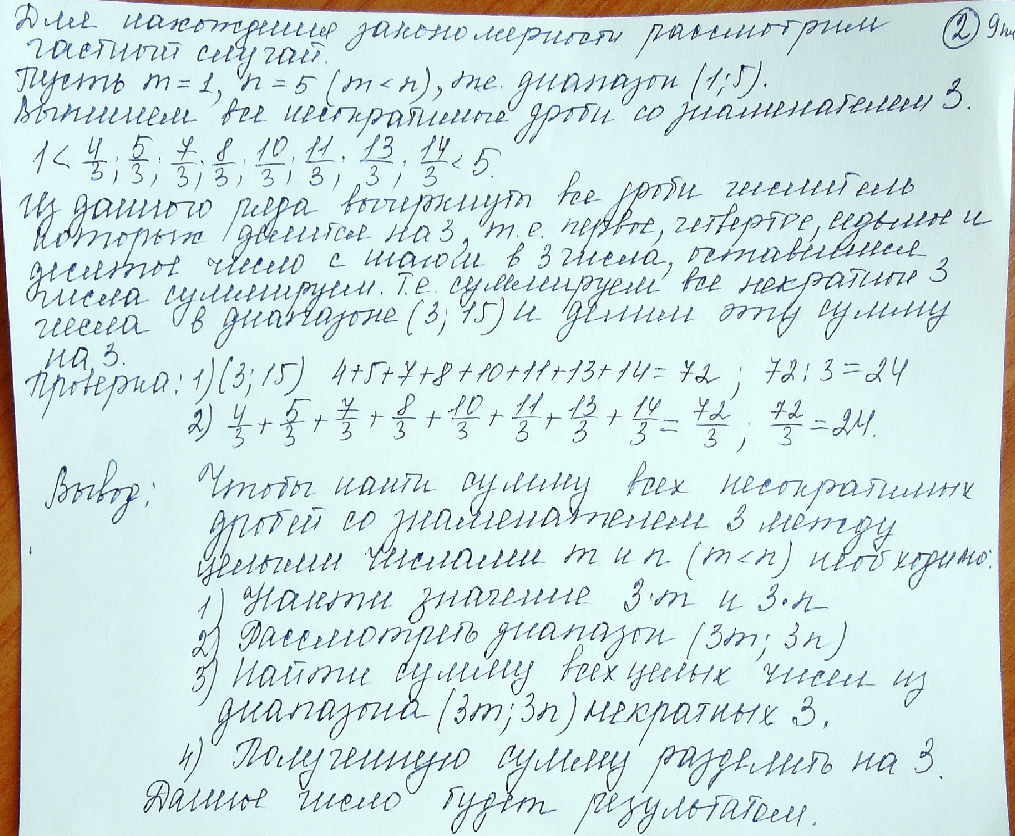 Для нахождения закономерности рассмотрим
частный случай.
Пусть m=1, n=5 (m<n), т.е. диапазон (1;5).
Выпишем все несократимые дроби со знаменателем 3.
1 < 4/3; 5/3; 7/3; 8/3; 10/3; 11/3; 13/3; 14/3 < 5.
Из данного ряда вычеркнуты все дроби числитель
которых делится на 3, т.е. первое, четвертое, седьмое и
десятое число с шагом в 3 числа, оставшиеся
числа суммируем. Т.е. суммируем все некратные 3
числа в диапазоне (3; 15) и делим эту сумму
на 3.
Проверка: 1) (3; 15) 4+5+7+8+10+11+13+14=72 ; 72:3=24
2) 4/3 + 5/3 + 7/3 + 8/3 + 10/3 + 11/3 + 13/3 + 14/3 = 72/3 ; 72/3 = 24.
Вывод: Чтобы найти сумму всех несократимых
дробей со знаменателем 3 между
целыми числами m и n (m<n) необходимо:
1) Найти значение 3·m и 3·n
2) Рассмотреть диапазон (3m; 3n)
3) Найти сумму всех целых чисел из
диапазона (3m; 3n) некратных 3.
4) Полученную сумму разделить на 3.
Данное число будет результатом.
2